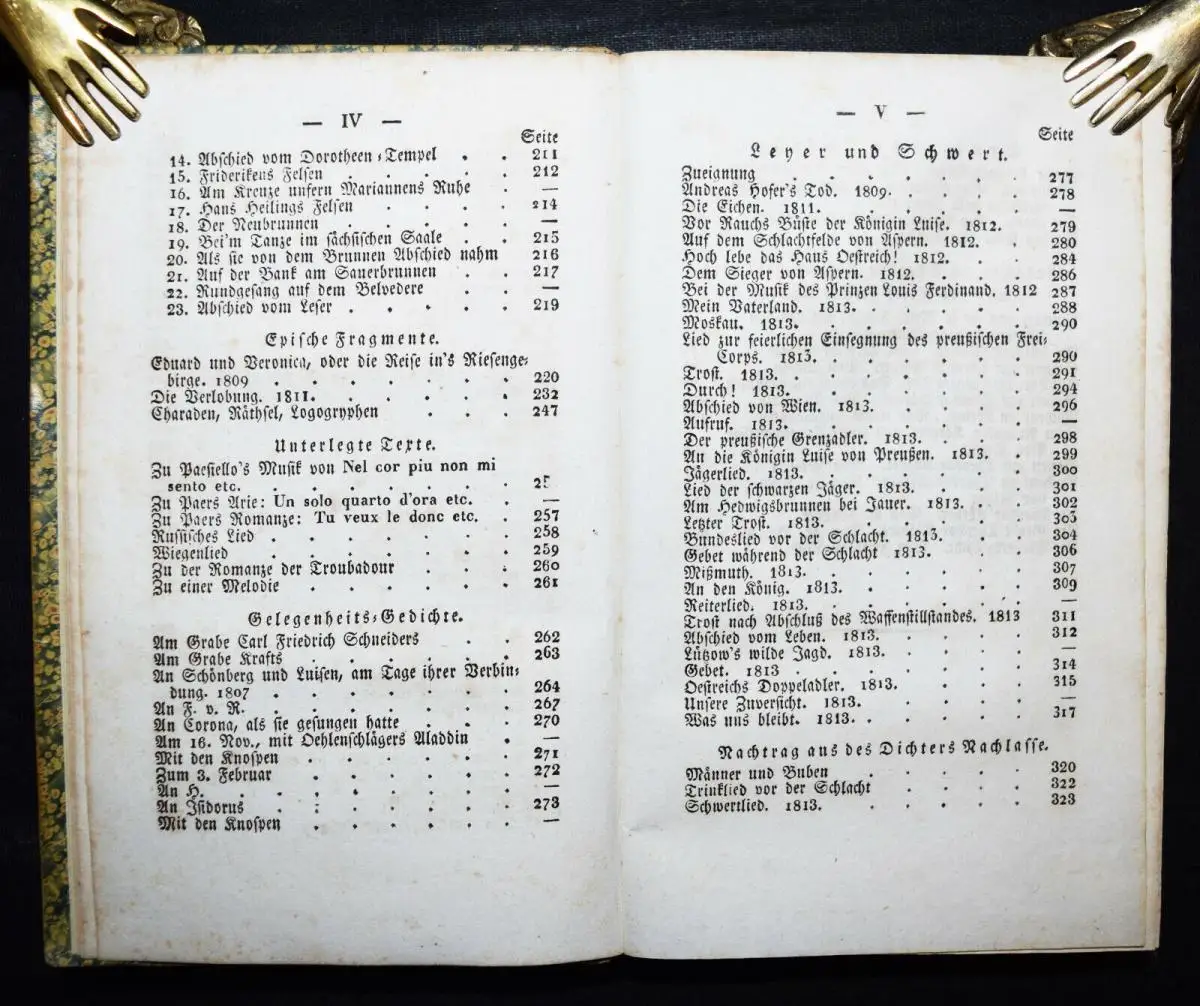 — IV —
Seite
14. Abschied vom Dorotheen-Tempel . . 211
15. Friderikens Felsen . . . . . 212
16. Am Kreuze unfern Mariannens Ruhe . —
17. Hans Heilings Felsen . . . . 214
18. Der Neubrunnen . . . . . —
19. Bei'm Tanze im sächsischen Saale . . 215
20. Als sie von dem Brunnen Abschied nahm 216
21. Auf der Bank am Sauerbrunnen . . 217
22. Rundgesang auf dem Belvedere . . —
23. Abschied vom Leser . . . . . 219
Epische Fragmente.
Eduard und Veronica, oder die Reise in's Riesenge-
birge. 1809 . . . . . . . 220
Die Verlobung. 1811. . . . . . 232
Charaden, Räthsel, Logogryphen . . . 247
Unterlegte Texte.
Zu Paesiello's Musik von Nel cor piu non mi
sento etc. . . . . . . . 25
Zu Paers Arie: Un solo quarto d'ora etc. . —
Zu Paers Romanze: Tu veux le donc etc. . 257
Russisches Lied . . . . . . . 258
Wiegenlied . . . . . . . 259
Zu der Romanze der Troubadour . . . 260
Zu einer Melodie . . . . . . 261
Gelegenheits-Gedichte.
Am Grabe Carl Friedrich Schneiders . . 262
Am Grabe Krafts . . . . . . 263
An Schönberg und Luisen, am Tage ihrer Verbin-
dung. 1807 . . . . . . . 264
An F. v. R. . . . . . . . 267
An Corona, als sie gesungen hatte . . . 270
Am 16. Nov., mit Oehlenschlägers Aladdin . —
Mit den Knospen . . . . . . 271
Zum 3. Februar . . . . . . 272
An H. . . . . . . . . —
An Isidorus . . . . . . . 273
Mit den Knospen . . . . . . —
— V —
Seite
Leyer und Schwert.
Zueignung . . . . . . . 277
Andreas Hofer's Tod. 1809. . . . . 278
Die Eichen. 1811. . . . . . —
Vor Rauchs Büste der Königin Luise. 1812. . 279
Auf dem Schlachtfelde von Aspern. 1812. . 280
Hoch lebe das Haus Oestreich! 1812. . . 284
Dem Sieger von Aspern. 1812. . . . 286
Bei der Musik des Prinzen Louis Ferdinand. 1812 287
Mein Vaterland. 1813. . . . . . 288
Moskau. 1813. . . . . . . 290
Lied zur feierlichen Einsegnung des preußischen Frei-
Corps. 1813. . . . . . . 290
Trost. 1813. . . . . . . 291
Durch! 1813. . . . . . . 294
Abschied von Wien. 1813. . . . . 296
Aufruf. 1813. . . . . . . —
Der preußische Grenzadler. 1813. . . . 298
An die Königin Luise von Preußen. 1813. . 299
Jägerlied. 1813. . . . . . 300
Lied der schwarzen Jäger. 1813. . . . 301
Am Hedwigsbrunnen bei Jauer. 1813. . . 302
Letzter Trost. 1813. . . . . . 303
Bundeslied vor der Schlacht. 1813. . . 304
Gebet während der Schlacht 1813. . . . 306
Mißmuth. 1813. . . . . . . 307
An den König. 1813. . . . . . 309
Reiterlied. 1813. . . . . . —
Trost nach Abschluß des Waffenstillstandes. 1813 311
Abschied vom Leben. 1813. . . . . 312
Lützow's wilde Jagd. 1813. . . . . —
Gebet. 1813 . . . . . . . 314
Oestreichs Doppeladler. 1813. . . . 315
Unsere Zuversicht. 1813. . . . . —
Was uns bleibt. 1813. . . . . . 317
Nachtrag aus des Dichters Nachlasse.
Männer und Buben . . . . . 320
Trinklied vor der Schlacht . . . . 322
Schwertlied. 1813. . . . . . 323